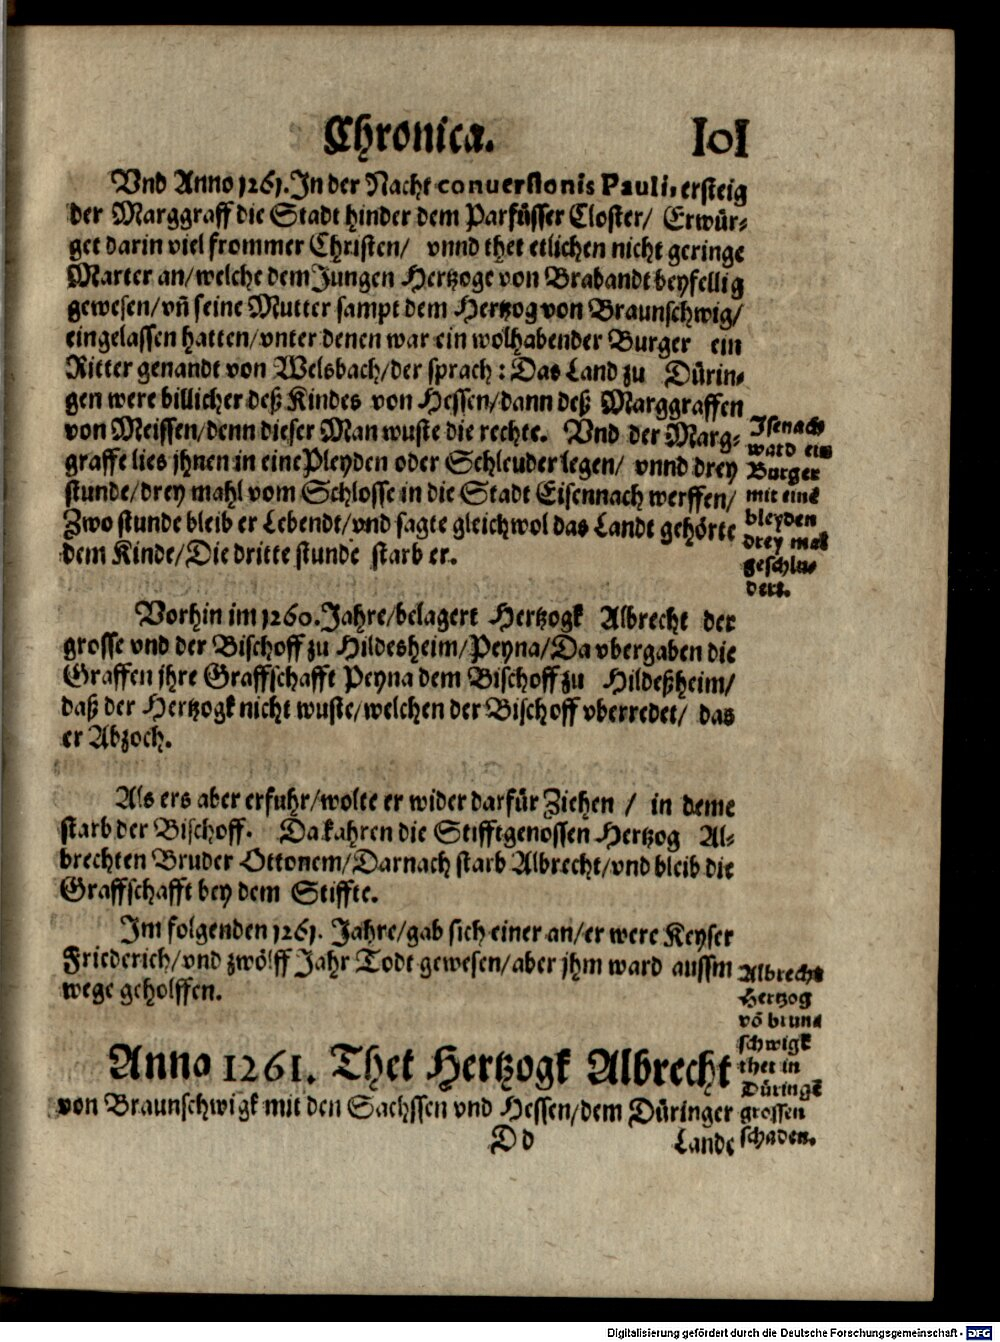 Chronica. 101
Vnd Anno 1261. In der Nacht conuersionis Pauli, ersteig
der Marggraff die Stadt hinder dem Parfüsser Closter/ Erwür-
get darin viel frommer Christen/ vnnd thet etlichen nicht geringe
Marter an/welche dem Jungen Hertzoge von Brabandt beyfellig
gewesen/vñ seine Mutter sampt dem Hertzog von Braunschwig/
eingelassen hatten/vnter denen war ein wolhabender Burger ein
Ritter genandt von Welsbach/der sprach: Das Land zu Dürin-
gen were billicher deß Kindes von Hessen/dann deß Marggraffen
von Meissen/denn dieser Man wuste die rechte. Vnd der Marg-
graffe lies jhnen in eine Pleyden oder Schleuder legen/ vnnd drey
stunde/drey mahl vom Schlosse in die Stadt Eisennach werffen/
Zwo stunde bleib er Lebendt/vnd sagte gleichwol das Landt gehörte
dem Kinde/Die dritte stunde starb er.
Isenach
ward ein
Burger
mit eine
bleyden
drey mal
geschleu-
dert.
Vorhin im 1260. Jahre/belagert Hertzogk Albrecht der
grosse vnd der Bischoff zu Hildesheim/Peyna/Da vbergaben die
Graffen jhre Graffschafft Peyna dem Bischoff zu Hildeßheim/
daß der Hertzogk nicht wuste/welchen der Bischoff vberredet/ das
er Abzoch.
Als ers aber erfuhr/wolte er wider darfür Ziehen / in deme
starb der Bischoff. Da kahren die Stifftgenossen Hertzog Al-
brechten Bruder Ottonem/Darnach starb Albrecht/vnd bleib die
Graffschafft bey dem Stiffte.
Im folgenden 1261. Jahre/gab sich einer an/er were Keyser
Friederich/vnd zwölff Jahr Todt gewesen/aber jhm ward aussm
wege geholffen.
Albrecht
Hertzog
võ brun-
schwigk
thet in
Düringẽ
grossen
schaden.
Anno 1261. Thet Hertzogk Albrecht
von Braunschwigk mit den Sachssen vnd Hessen/dem Düringer
Dd Lande
Digitalisierung gefördert durch die Deutsche Forschungsgemeinschaft - DFG